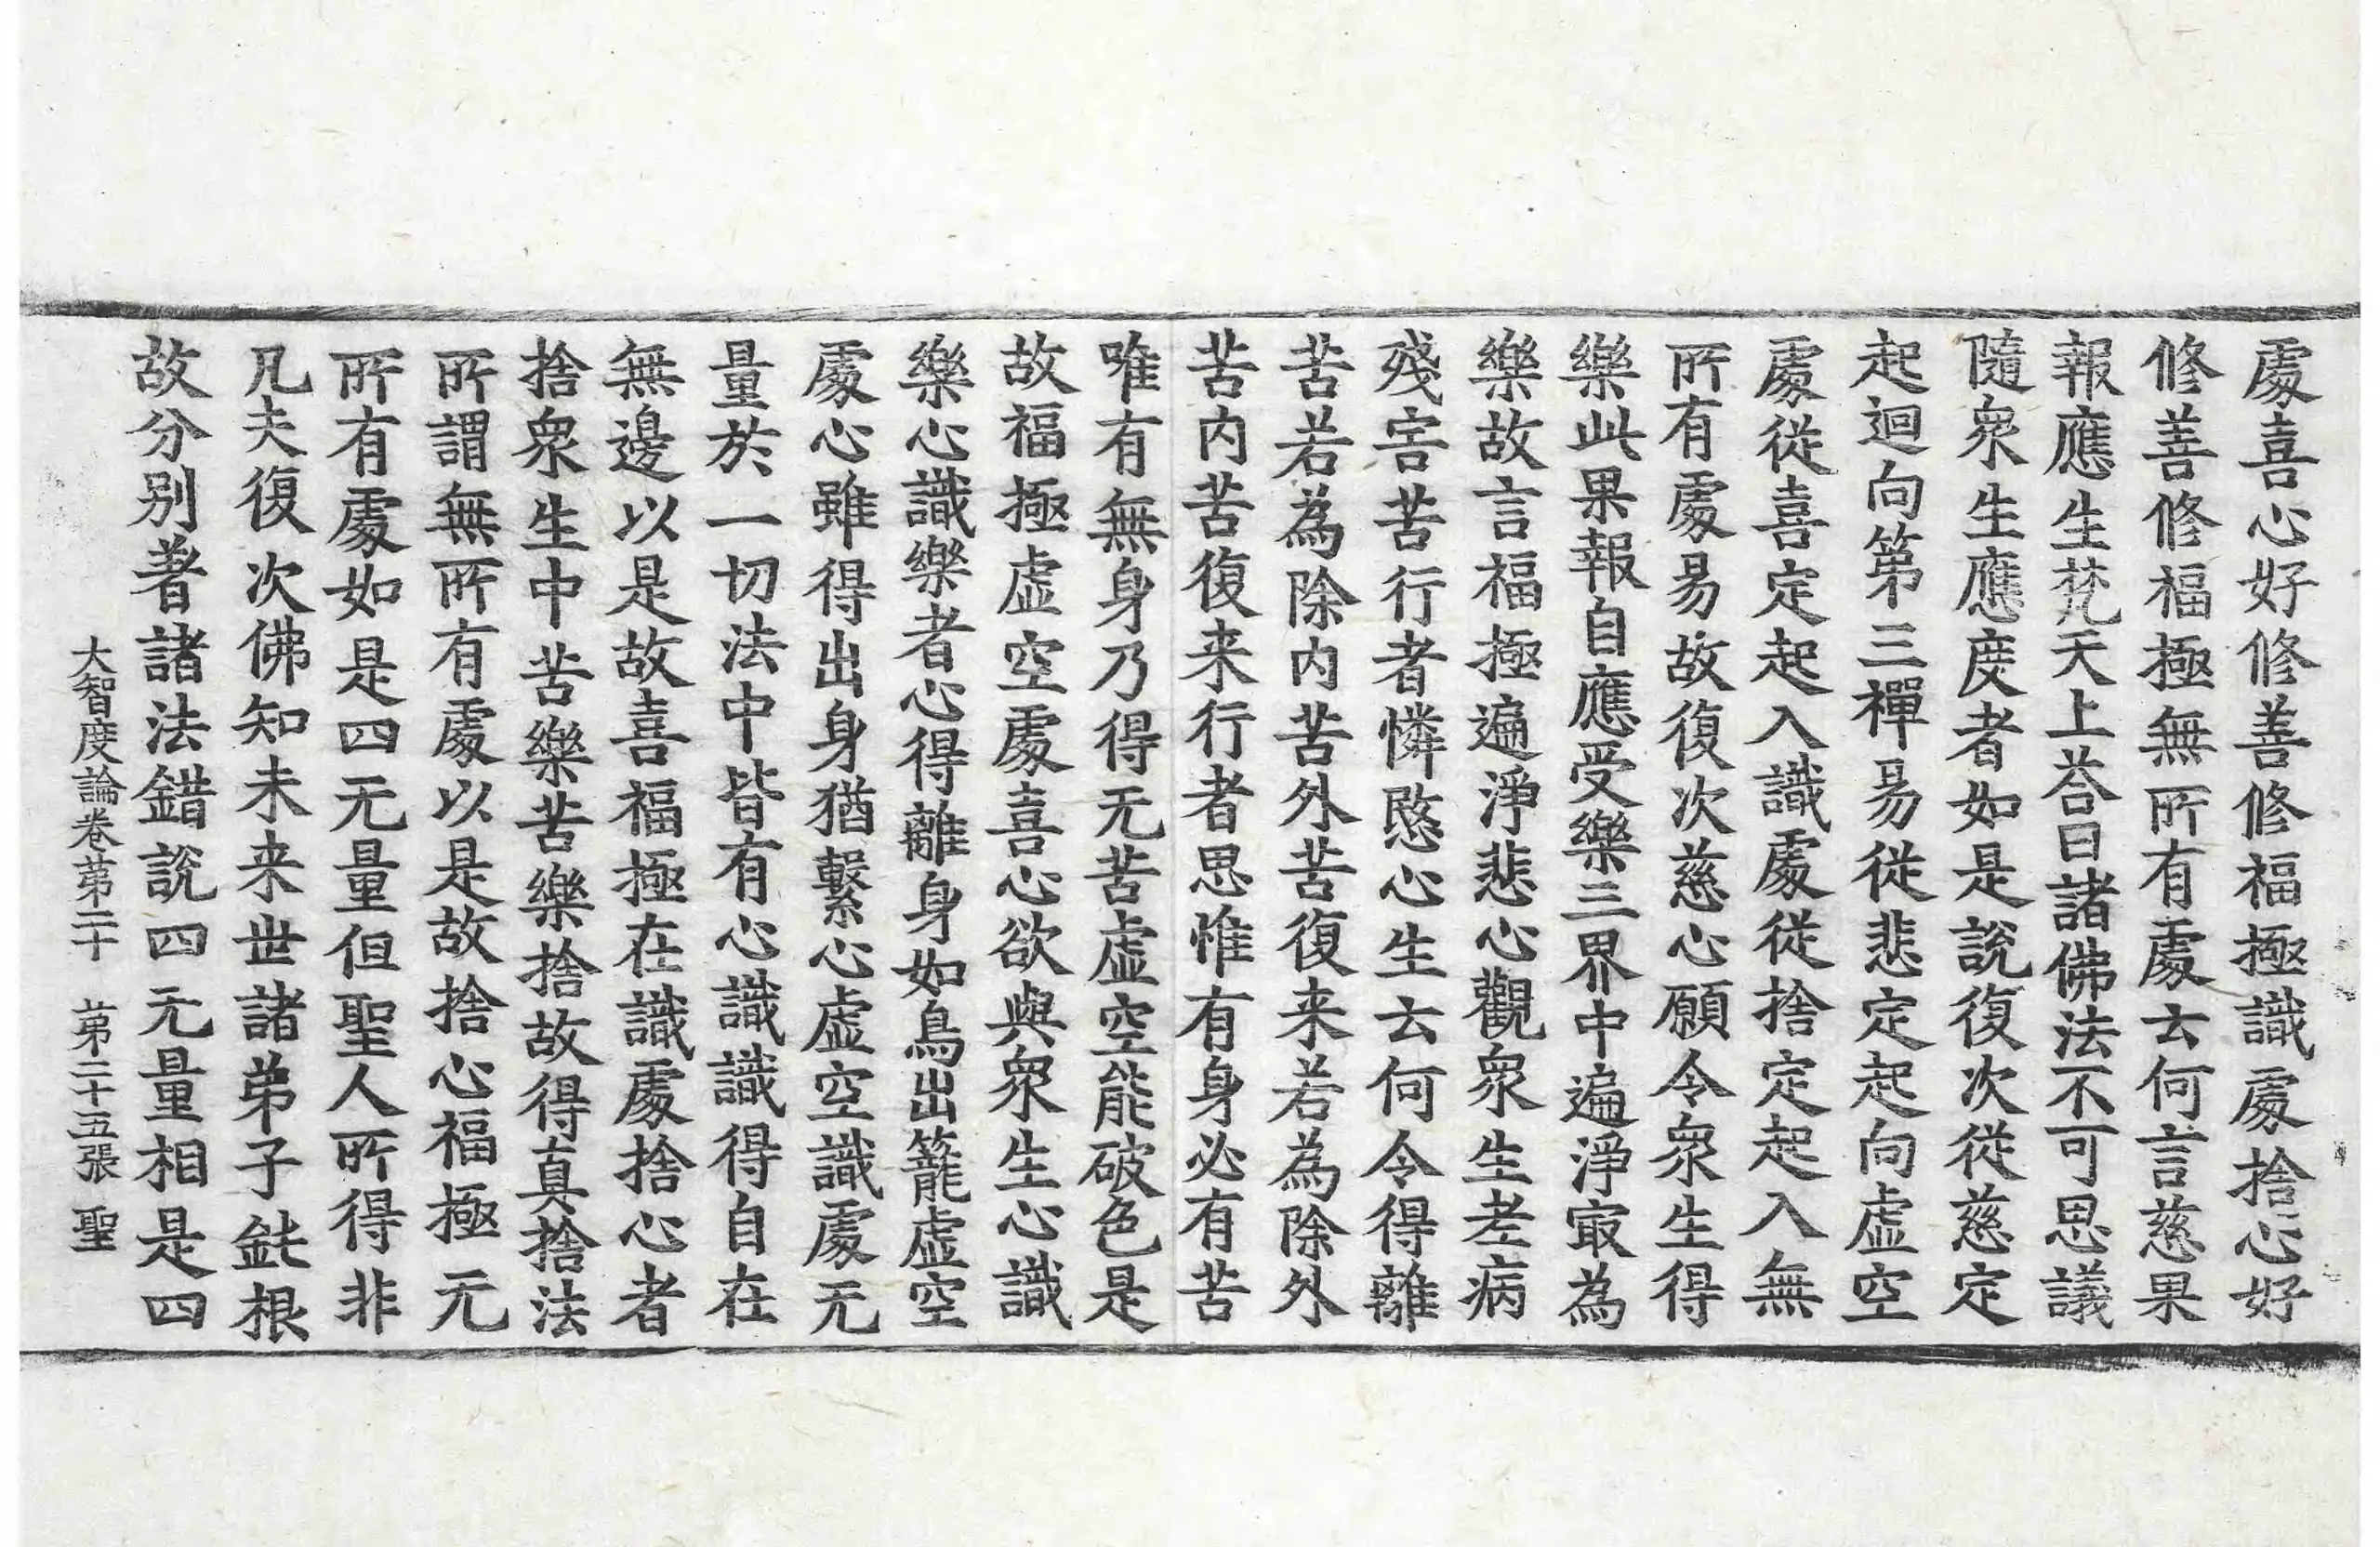 處喜心好修善修福極識處捨心好
修善修福極無所有處云何言慈果
報應生梵天上荅曰諸佛法不可思議
隨衆生應度者如是說復次從慈定
起迴向第三禪易從悲定起向虛空
處從喜定起入識處從捨定起入無
所有處易故復次慈心願令衆生得
樂此果報自應受樂三界中遍淨冣為
樂故言福極遍淨悲心觀衆生老病
殘害苦行者憐愍心生云何令得離
苦若為除內苦外苦復来若為除外
苦內苦復来行者思惟有身必有苦
唯有無身乃得无苦虛空能破色是
故福極虛空處喜心欲與衆生心識
樂心識樂者心得離身如鳥出籠虛空
處心雖得出身猶繫心虛空識處无
量於一切法中皆有心識識得自在
無邊以是故喜福極在識處捨心者
捨衆生中苦樂苦樂捨故得真捨法
所謂無所有處以是故捨心福極无
所有處如是四无量但聖人所得非
凡夫復次佛知未来世諸弟子鈍根
故分别著諸法錯說四无量相是四
大智度論卷苐二十　苐二十五張　聖